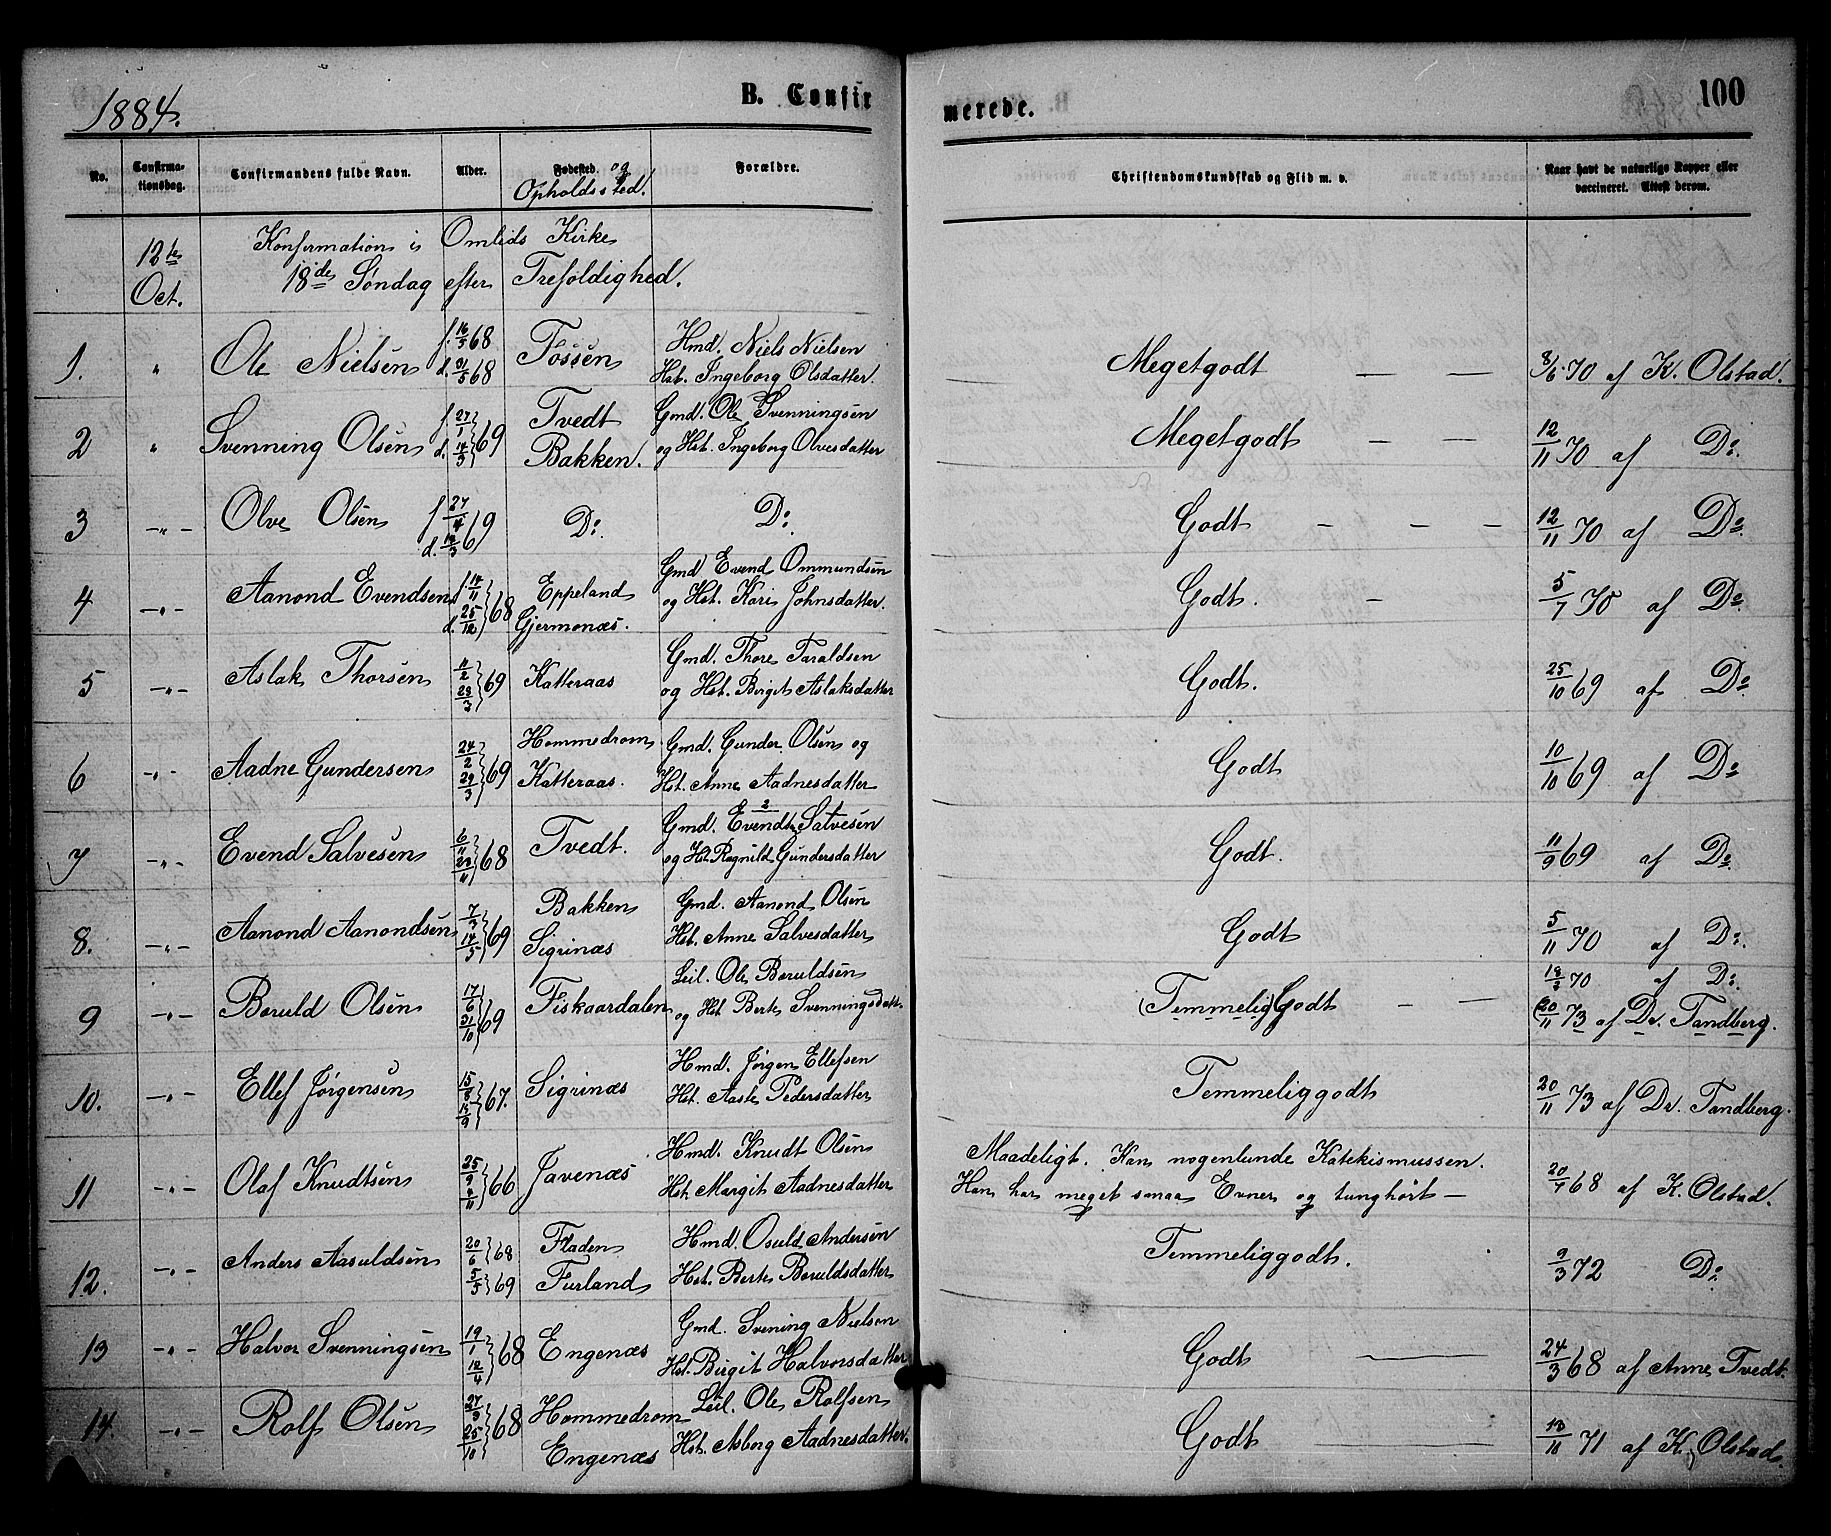 1884.
B. Confirmerede.
100
No.
Confirmationsdag.
Confirmandens fulde Navn.
Alder.
Fødested. og Opholdssted.
Forældre.
Christendomskundskab og Flid m. v.
Naar havt de naturlige Kopper eller vaccineret. Attest derom.
12te Oct. Konfirmation i Omlids Kirke
18de Søndag efter Trefoldighed.
1. " Ole Nielsen f. 16/5 68 d. 31/5 68 Fossen Hmd. Niels Nielsen Hst. Ingeborg Olsdatter. Megetgodt — — 8/6 70 af K. Olstad.
2 " Svenning Olsen f. 27/1 d. 14/3 69 Tvedt Bakken. Gmd. Ole Svenningsen og Hst. Ingeborg Olvesdatter Megetgodt — — 12/11 70 af Do.
3 -"- Olve Olsen f. 27/1 d. 14/3 69 Do. Do. Godt — — — 12/11 70 af Do.
4 -"- Aanond Evendsen f. 14/11 d. 25/12 68 Eppeland Gjermonæs. Gmd Evend Ommundsen og Hst. Kari Johnsdatter. Godt. — 5/7 70 af Do.
5 -"- Aslak Thorsen 11/2 29/3 69 Katteraas Gmd. Thore Taraldsen og Hst. Birgit Aslaksdatter Godt. 25/10 69 af Do.
6 -"- Aadne Gundersen 24/2 29/3 69 Hommedrom Katteraas. Gmd. Gunder Olsen og Hst. Anne Aadnesdatter Godt 10/10 69 af Do
7 -"- Evend Salvesen 6/11 29/11 68 Tvedt. Gmd. Evendt Salvesen og Hst. Ragnild Gundersdatter Godt. 11/9 69 af Do.
8. -"- Aanond Aanondsen 7/3 14/5 69 Bakken Sigrinæs Gmd. Aanond Olsen Hst. Anne Salvesdatter Godt 5/11 70 af Do.
9 -"- Boruld Olsen 17/6 31/10 69 Fiskaardalen Leil. Ole Boruldsen og Hst Berte Svenningsdatt. (Temmelig) Godt — — 18/8 70 af Do. (20/11 73 af Dr. Tandberg.
10. -"- Ellef Jørgensen 15/8 15/9 67. Sigrinæs Hmd. Jørgen Ellefsen Hst. Aaste Pedersdatter Temmeliggodt 20/11 73 af Dr. Tandberg.
11 -"- Olaf Knudtsen 25/9 4/11 66 Javenæs Hmd. Knudt Olsen Hst. Margit Aadnesdatter Maadeligt. Kan nogenlunde Katekismussen. Han har meget smaa Evner og tunghørt — 20/7 68 af K. Olstad.
12. -"- Anders Aasuldsen 20/6 68 5/5 69 Fladen Furland Hmd. Osuld Andersen Hst. Berte Boruldsdatter Temmeliggodt. 9/3 72 Do.
13 -"- Halvor Svenningsen 19/1 12/4 68 Engenæs Gmd. Svening Nielsen Hst. Birgit Halvorsdatter Godt — 24/3 68 af Anne Tvedt.
14. -"- Rolf Olsen 27/9 25/10 68 Hommedrom Engenæs Leil. Ole Rolfsen Hst. Asborg Aadnesdatter. Godt — 13/11 71 af K. Olstad.